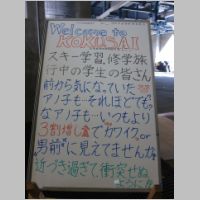 Welcome to
KOKUSAI
スキー学習、修学旅
行中の学生の皆さん
前から気になっていた
アノ子も…それほどでも
なアノ子も…いつもより
3割増し💰でカワイク、or
男前に見えてませんか。
近づき過ぎて、衝突せぬ
ように